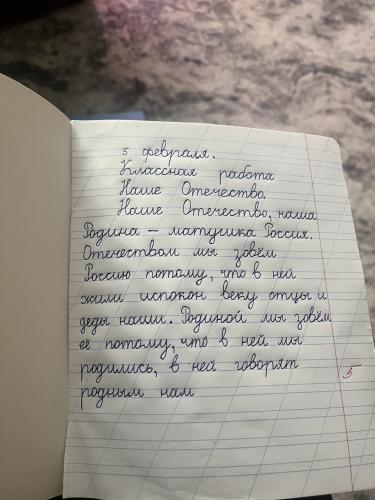 5 февраля.
Классная работа
Наше Отечество.
Наше Отечество, наша
Родина – матушка Россия.
Отечеством мы зовём
Россию потому, что в ней
жили испокон веку отцы и
деды наши. Родиной мы зовём
её потому, что в ней мы
родились, в ней говорят
5
родным нам